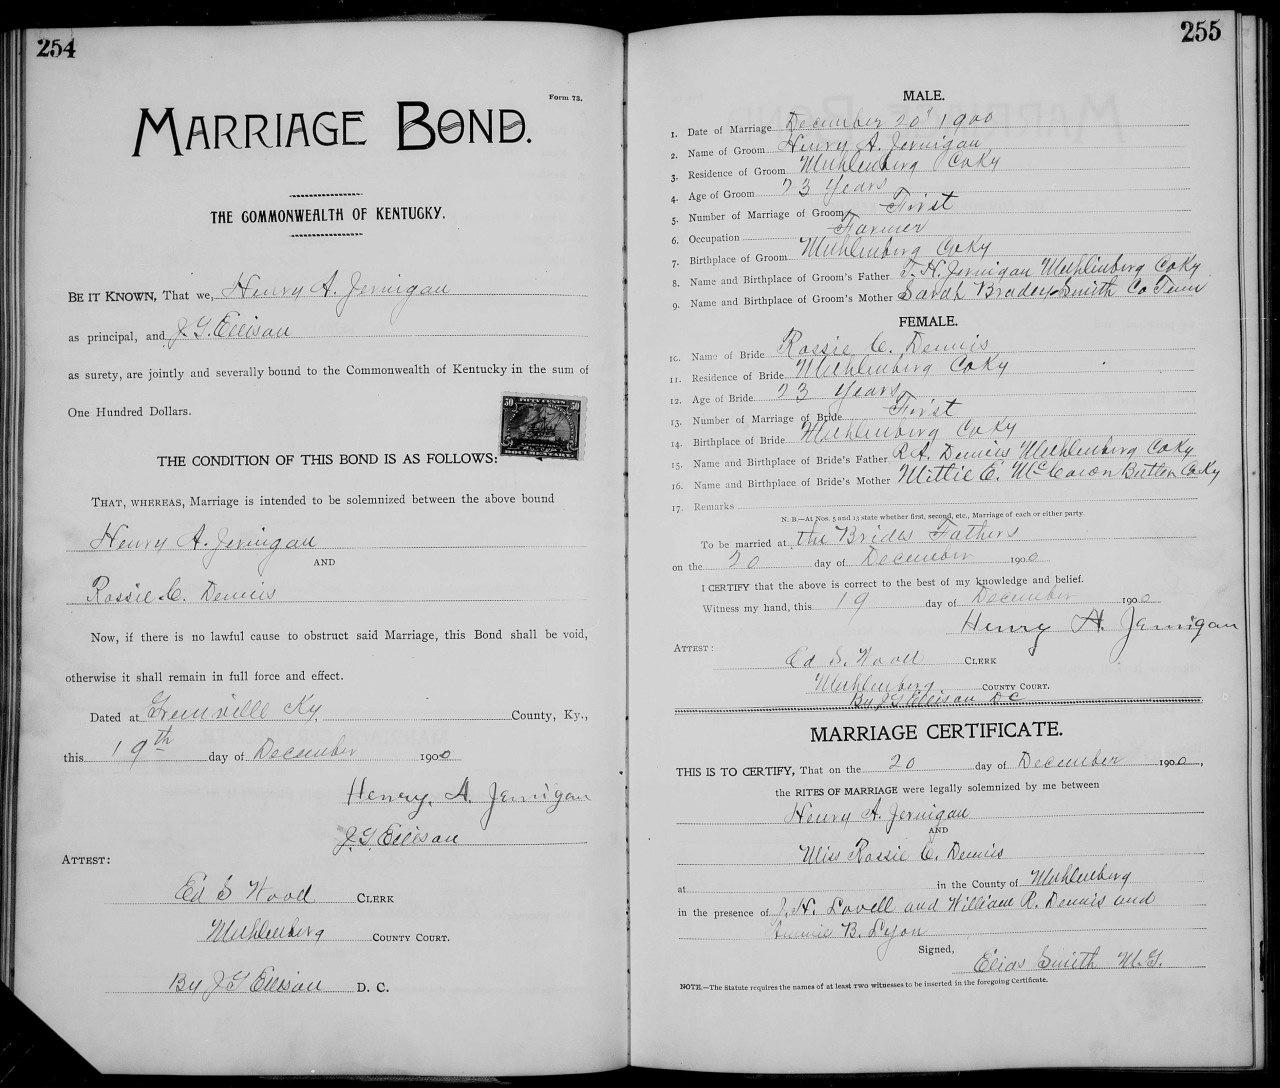 254
Form 73.
MARRIAGE BOND.
THE COMMONWEALTH OF KENTUCKY.
BE IT KNOWN, That we, Henry A. Jernigan
as principal, and J. G. Ellison
as surety, are jointly and severally bound to the Commonwealth of Kentucky in the sum of
One Hundred Dollars.
50 FIFTY CENTS 50
DOCUMENTARY
THE CONDITION OF THIS BOND IS AS FOLLOWS:
THAT, WHEREAS, Marriage is intended to be solemnized between the above bound
Henry A. Jernigan
AND
Rossie C. Dennis
Now, if there is no lawful cause to obstruct said Marriage, this Bond shall be void,
otherwise it shall remain in full force and effect.
Dated at Greenville Ky County, Ky.,
this 19th day of December 1900
Henry. A. Jernigan
J. G. Ellison
ATTEST:
Ed S Wood CLERK
Muhlenberg COUNTY COURT.
By J G Ellison D. C.
255
MALE.
1. Date of Marriage December 20" 1900
2. Name of Groom Henry A. Jernigan
3. Residence of Groom Muhlenberg Co Ky
4. Age of Groom 23 Years
5. Number of Marriage of Groom First
6. Occupation Farmer
7. Birthplace of Groom Muhlenberg Co Ky
8. Name and Birthplace of Groom's Father T. H. Jernigan Muhlenberg Co Ky
9. Name and Birthplace of Groom's Mother Sarah Bradey Smith Co Tenn
FEMALE.
10. Name of Bride Rossie C. Dennis
11. Residence of Bride Muhlenberg Co Ky
12. Age of Bride 23 Years
13. Number of Marriage of Bride First
14. Birthplace of Bride Muhlenberg Co Ky
15. Name and Birthplace of Bride's Father R. A. Dennis Muhlenberg Co Ky
16. Name and Birthplace of Bride's Mother Mittie E. Butler Co Ky
17. Remarks
N. B.—At Nos. 5 and 13 state whether first, second, etc., Marriage of each or either party.
To be married at the Brides Fathers
on the 20 day of December 1900
I CERTIFY that the above is correct to the best of my knowledge and belief.
Witness my hand, this 19 day of December 1900
Henry A. Jernigan
ATTEST:
Ed S. Wood CLERK
Muhlenberg COUNTY COURT.
By J G Ellison D C
MARRIAGE CERTIFICATE.
THIS IS TO CERTIFY, That on the 20 day of December 1900,
the RITES OF MARRIAGE were legally solemnized by me between
Henry A. Jernigan
AND
Miss Rossie C. Dennis
at in the County of Muhlenberg
in the presence of J. H. Lovell and William R. Dennis and
B. Lyon
Signed,
Elias Smith M. G.
NOTE.—The Statute requires the names of at least TWO witnesses to be inserted in the foregoing Certificate.